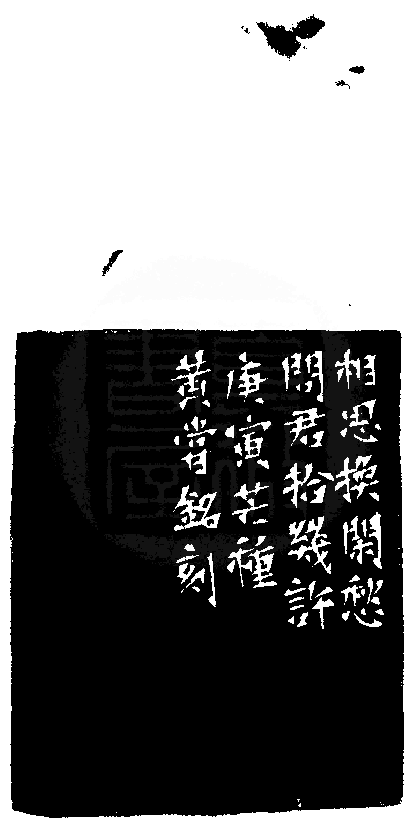 相思換閑愁
問君拾幾許
庚寅芒種
黃嘗銘刻